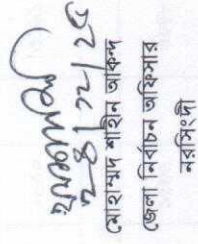 ২৪/১২/২৫
মোহাম্মদ শাহীন আকন্দ
জেলা নির্বাচন অফিসার
নরসিংদী